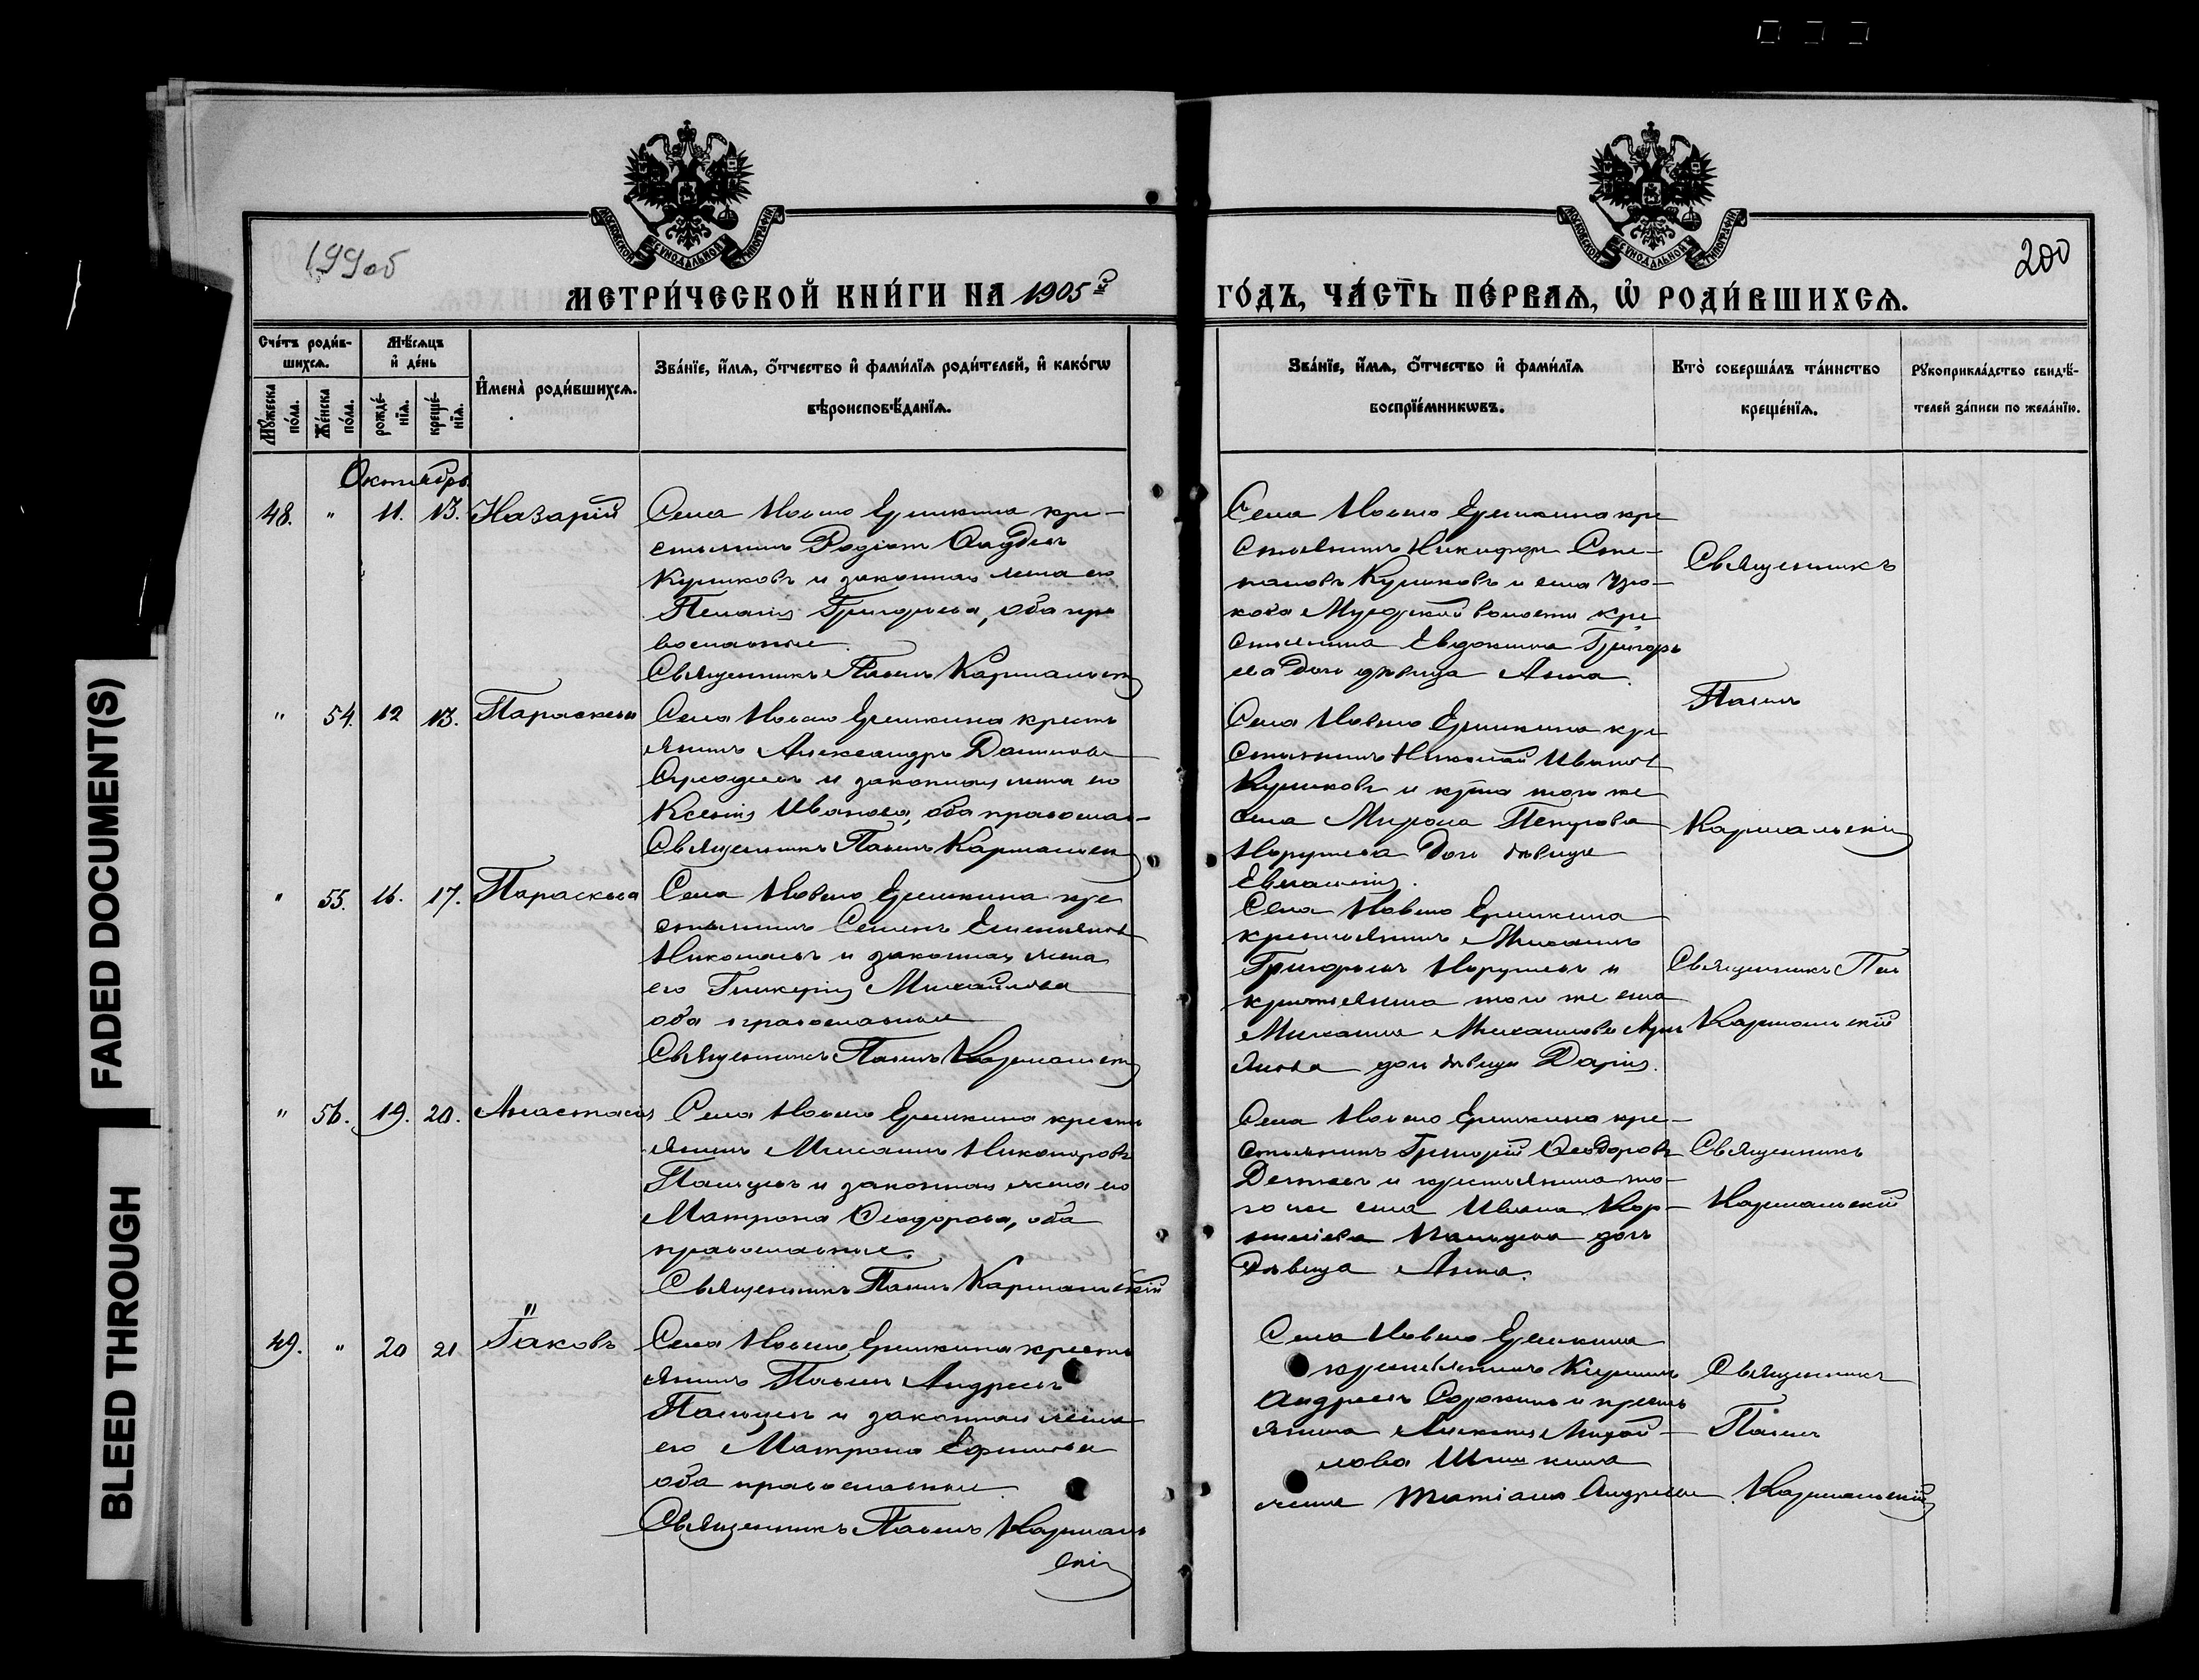 FADED DOCUMENT(S)
BLEED THROUGH
199об
200
МОСКОВСКОЙ СѴНОДАЛЬНОЙ ТИПОГРАФІИ
МОСКОВСКОЙ СѴНОДАЛЬНОЙ ТИПОГРАФІИ
МЕТРИ́ЧЕСКОЙ КНИ́ГИ НА 1905й
ГО́ДЪ, ЧА́СТЬ ПЕ́РВАѦ, Ѡ РОДИ́ВШИХСѦ.
Сче́тъ роди́в-
шихсѧ.
Мꙋжеска по́ла.
Же́нска по́ла.
Мѣ́сѧцъ
и҆ де́нь
рожде́-
нїѧ.
креще́-
нїѧ.
И҆мена̀ роди́вшихсѧ.
Зва́нїе, и҆́мѧ, о҆́тчество и҆ фами́лїѧ роди́телей, и҆ како́гѡ
вѣроисповѣ́данїѧ.
Зва́нїе, и҆́мѧ, о҆́тчество и҆ фами́лїѧ
воспрїе́мникѡвъ.
Кто̀ соверша́лъ та́инство
креще́нїѧ.
Рꙋкоприкла́дство свидѣ́-
телей за́писи по жела́нїю.
Октябрь
48. " 11. 13. Назарій
Села Новаго Ермикина кре-
стьянинъ Родіонъ
Куликовъ и законная жена его
Пелагія Григорьева, оба пра
вославные.
Священникъ Павелъ Кармальскій
Села Новаго Ермикина кре
стьянинъ Никифоръ Сте-
пановъ Куликовъ и села
волости кре
стьянина Евдокима Григорь
ева дочь дѣвица Анна.
Священникъ
Павелъ
Кармальскій
" 54. 12 13. Параскева
Села Новаго Ермикина кресть
янинъ Александръ Даниловъ
и законная жена его
Ксенія Иванова, оба православ
Священникъ Павелъ Кармальскій
Села Новаго Ермикина кре
стьянинъ Николай Ивановъ
Куликовъ и кр-на того же
села Мирона Петрова
дочь дѣвица
Евлампія.
" 55. 16. 17. Параскева
Села Новаго Ермикина кре
стьянинъ Семенъ Емельяновъ
Николаевъ и законная жена
его Гликерія Михайлова
оба православные
Священникъ Павелъ Кармальскій
Села Новаго Ермикина
крестьянинъ Михаилъ
Григорьевъ и
крестьянина того же села
Михаила Михайлова
дочь дѣвица Дарія.
Священникъ Пав
Кармальскій
" 56. 19. 20. Анастасія
Села Новаго Ермикина кресть
янинъ Михаилъ Никаноровъ
Пальцевъ и законная жена его
Матрона Ѳеодорова, оба
православные.
Священникъ Павелъ Кармальскій
Села Новаго Ермикина кре-
стьянинъ Григорій Ѳеодоровъ
и крестьянина то-
го же села Ивана Кор-
нилієва Пальцева дочь
дѣвица Анна.
Священникъ
Кармальскій
49. " 20 21 Іаковъ
Села Новаго Ермикина кресть
янинъ Павелъ Андреевъ
Пальцевъ и законная жена
его Матрона Ефимова
оба православные.
Священникъ Павелъ Кармаль
скій
Села Новаго Ермикина
крестьянинъ Кириллъ
Андреевъ Сорокинъ и кресть
янина Алексія Михай-
лова Шишкина
жена Татіана Андреева
Священникъ
Павелъ
Кармальскій